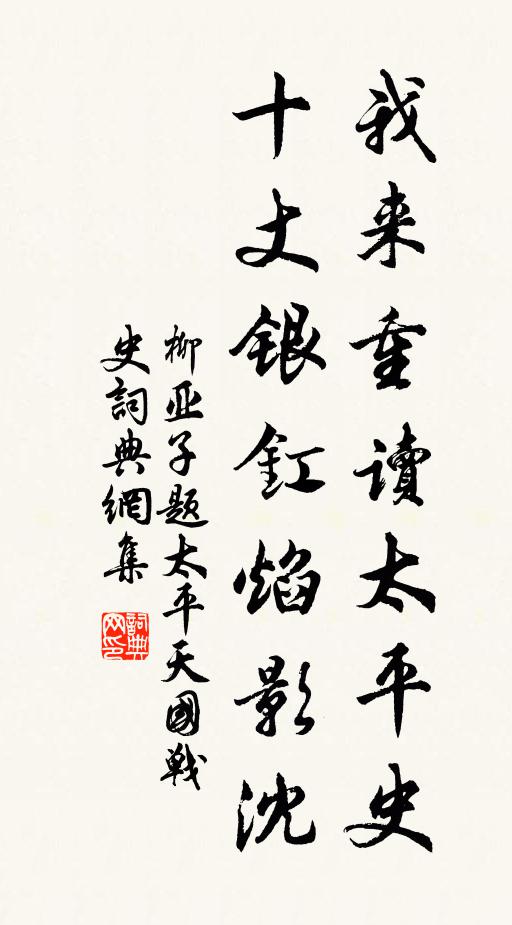 我来重讀太平史
十丈銀釭焰影沈
柳亚子题太平天國戰
史詞典網集
詞典网印